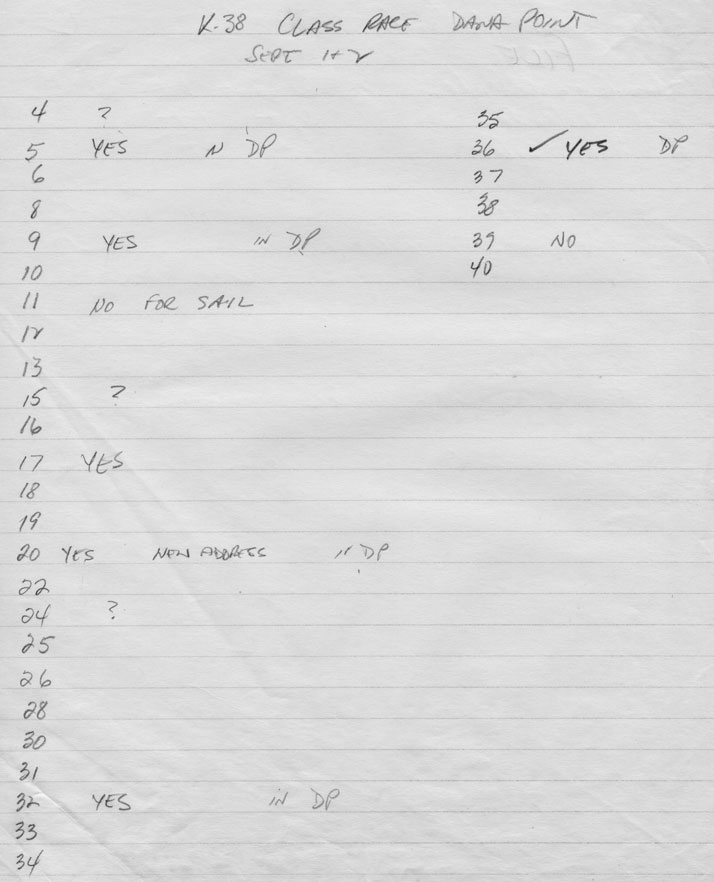 K-38 CLASS RACE DANA POINT
SEPT 1+2
4 ?
5 YES IN DP
6
8
9 YES IN DP
10
11 NO FOR SAIL
12
13
15 ?
16
17 YES
18
19
20 YES NEW ADDRESS IN DP
22
24 ?
25
26
28
30
31
32 YES IN DP
33
34
35
36 ✓ YES DP
37
38
39 NO
40